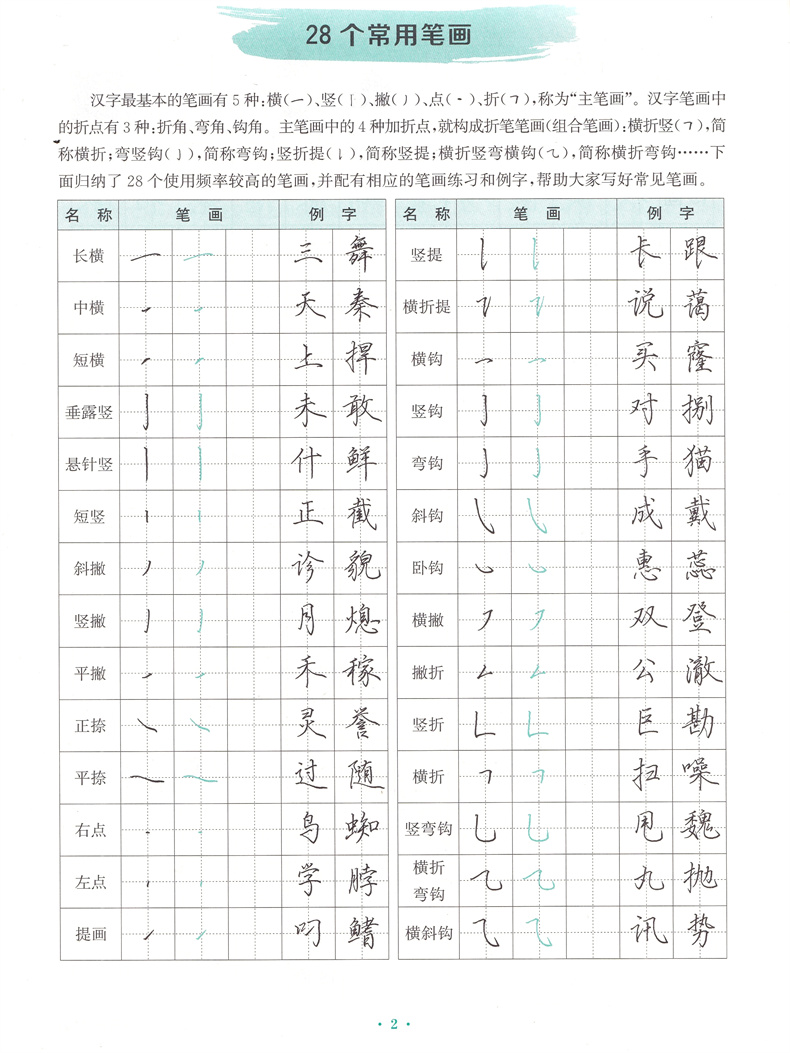 28个常用笔画
汉字最基本的笔画有5种:横(㇐)、竖(丨)、撇(丿)、点(丶)、折(㇕),称为“主笔画”。汉字笔画中
的折点有3种:折角、弯角、钩角。主笔画中的4种加折点,就构成折笔笔画(组合笔画):横折竖(㇕),简
称横折;弯竖钩(亅),简称弯钩;竖折提(㇙),简称竖提;横折竖弯横钩(㇈),简称横折弯钩……下
面归纳了28个使用频率较高的笔画,并配有相应的笔画练习和例字,帮助大家写好常见笔画。
名 称 笔 画 例 字
长横 三 舞
中横 天 秦
短横 上 捍
垂露竖 未 敢
悬针竖 什 鲜
短竖 正 截
斜撇 诊 貌
竖撇 月 熄
平撇 禾 稼
正捺 灵 誉
平捺 过 随
右点 鸟 蜘
左点 学 脖
提画 叼 鳍
名 称 笔 画 例 字
竖提 长 跟
横折提 说 蔼
横钩 买 窿
竖钩 对 捌
弯钩 手 猫
斜钩 成 戴
卧钩 惠 蕊
横撇 双 登
撇折 公 澈
竖折 巨 勘
横折 扫 噪
竖弯钩 甩 魏
横折
弯钩 丸 抛
横斜钩 讯 势
· 2 ·